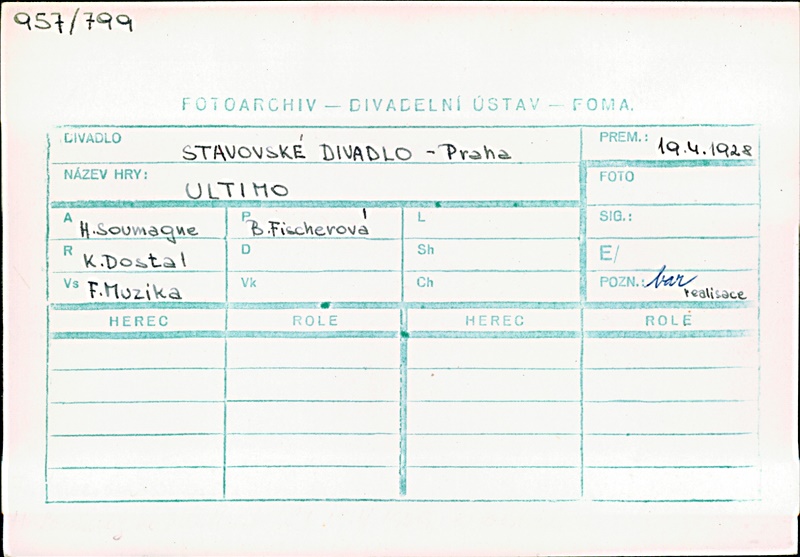 957/799
FOTOARCHIV — DIVADELNÍ ÚSTAV — FOMA.
DIVADLO STAVOVSKÉ DIVADLO - Praha PREM.: 19.4.1928
NÁZEV HRY: ULTIMO FOTO
A H.Soumagne P B.Fischerová L SIG.:
R K.Dostal D Sh E/
Vs F.Muzika Vk Ch POZN.: bar
realisace
HEREC ROLE HEREC ROLE